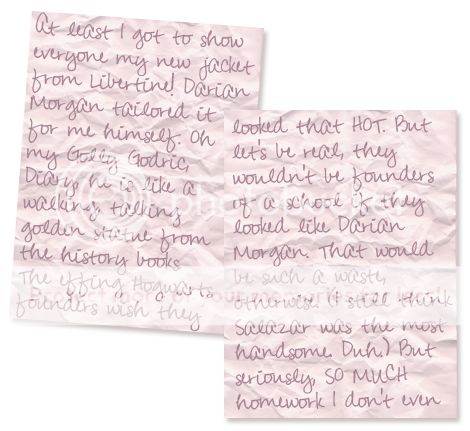 At least I got to show
everyone my new jacket
from Libertine! Darian
Morgan tailored it
for me himself. Oh
my Golly Godric,
Diary, he is like a
walking talking
golden statue from
the history books
The effing Hogwarts
founders wish they
looked that HOT. But
let's be real, they
wouldn't be founders
of a school if they
looked like Darian
Morgan. That would
be such a waste,
otherwise (I still think
Salazar was the most
handsome. Duh.) But
seriously, SO MUCH
homework I don't even